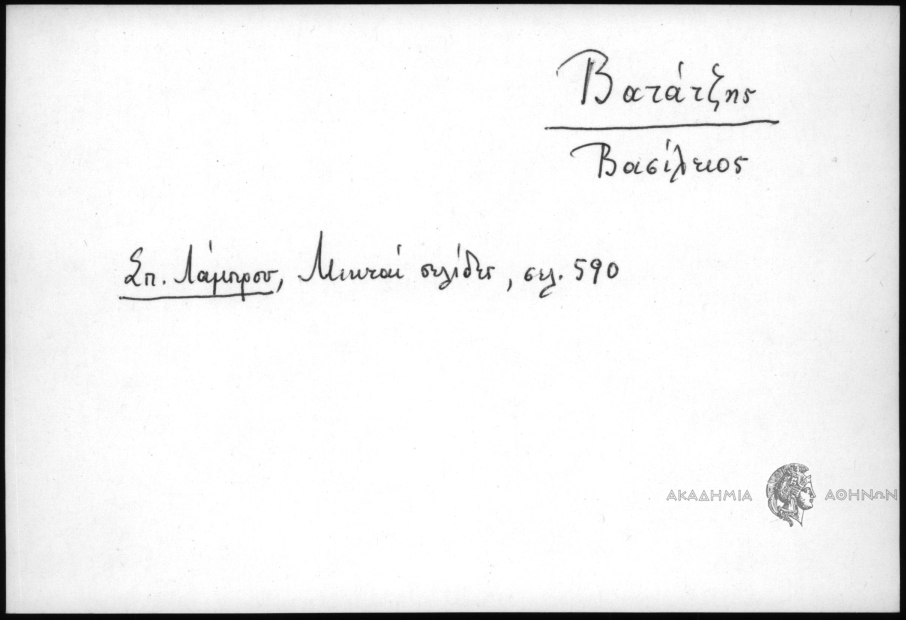 Βατάτζης
Βασίλειος
Σπ. Λάμπρου, Μικταί σελίδες, σελ. 590
ΑΚΑΔΗΜΙΑ ΑΘΗΝΩΝ